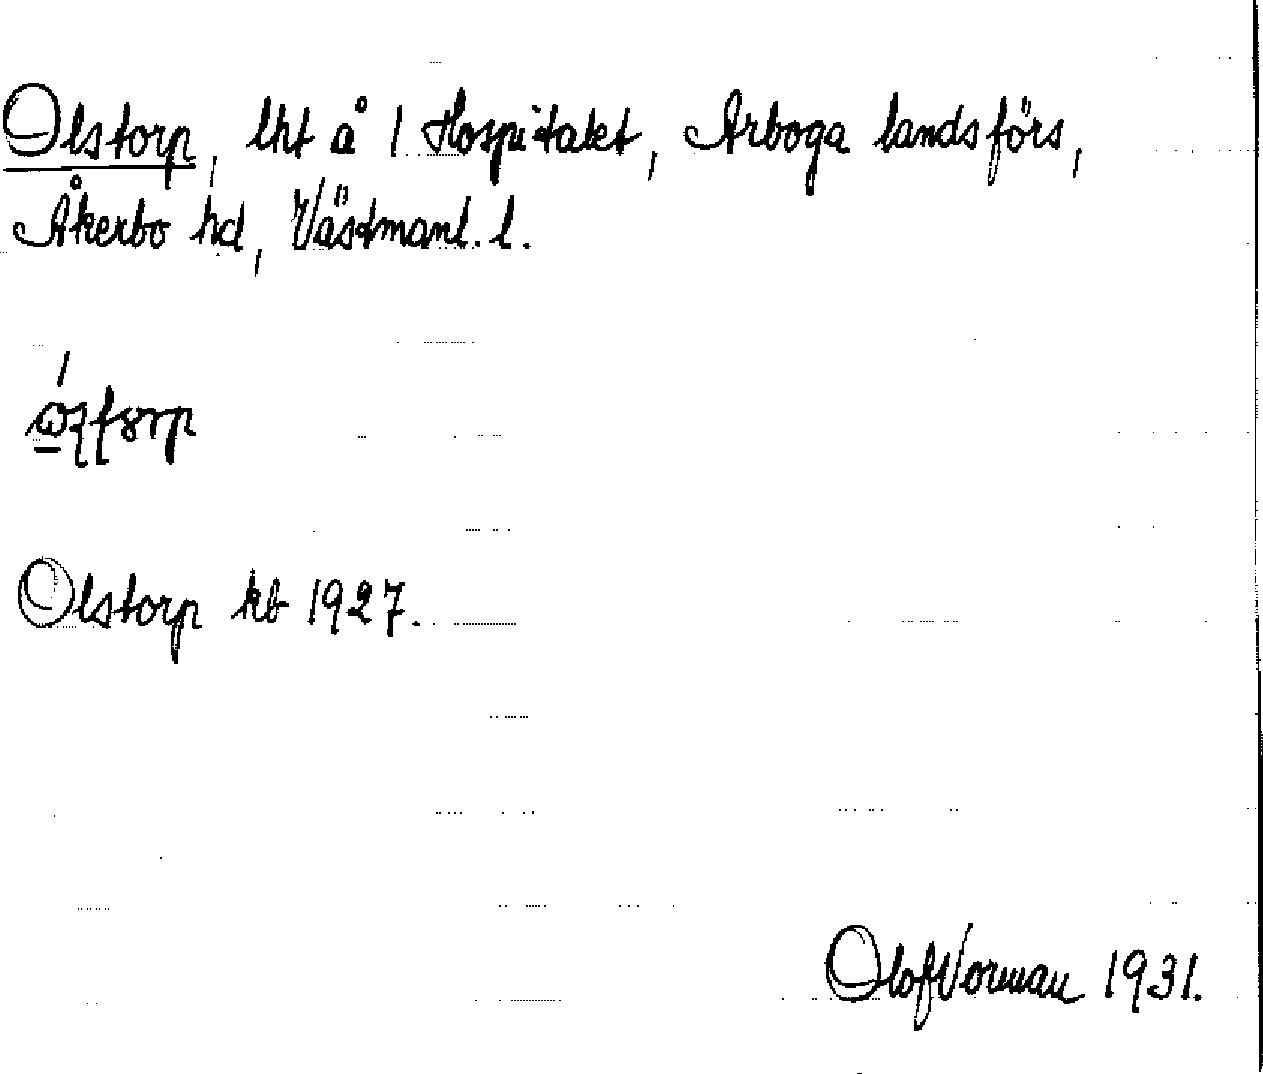 Olstorp, lht å 1 Hospitalet, Arboga landsförs,
Åkerbo hd, Västmanl. l.
Olstorp kb 1927.
Olof Vorman 1931.